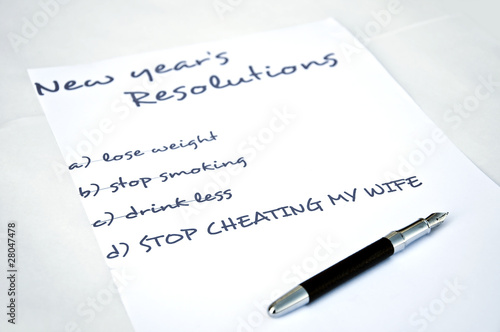 New year's
Resolutions
a) lose weight
b) stop smoking
c) drink less
d) STOP CHEATING MY WIFE
Adobe Stock | #28047478